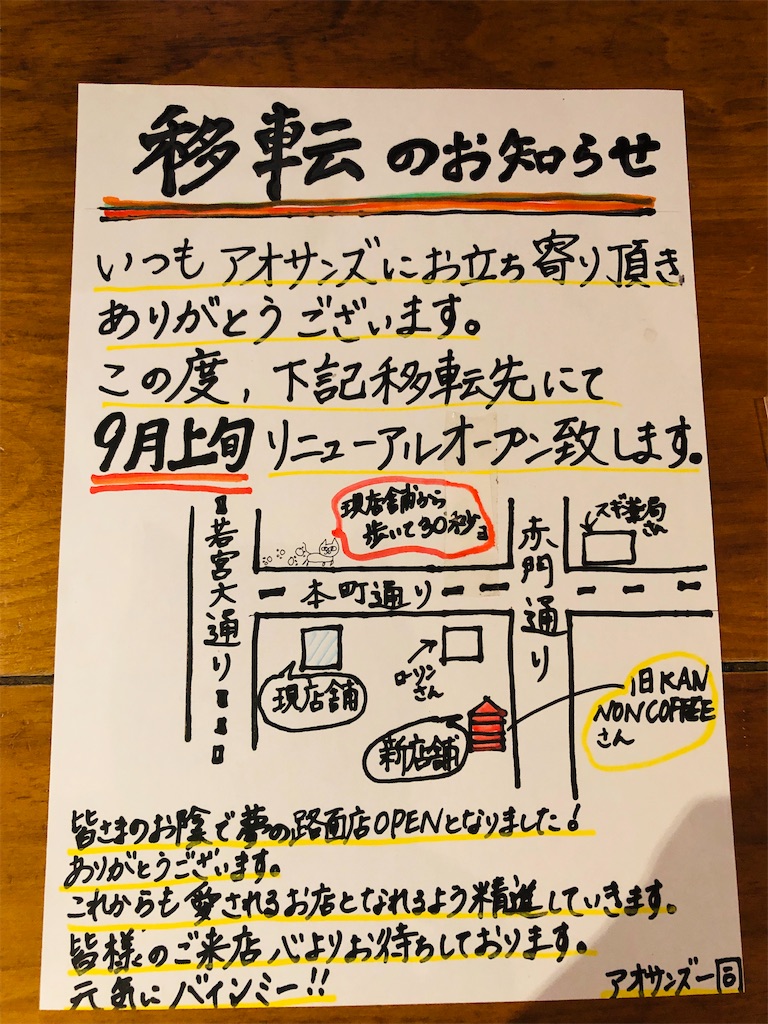 移転のお知らせ
いつもアオサンズにお立ち寄り頂き
ありがとうございます。
この度、下記移転先にて
9月上旬リニューアルオープン致します。
現店舗から
歩いて30秒
若宮大通り
本町通り
赤門通り
スギ薬局
さん
現店舗
ローソン
さん
新店舗
旧KAN
NONCOFFEE
さん
皆さまのお陰で夢の路面店OPENとなりました!
ありがとうございます。
これからも愛されるお店となれるよう精進していきます。
皆様のご来店心よりお待ちしております。
元気にバインミー!!
アオサンズ一同